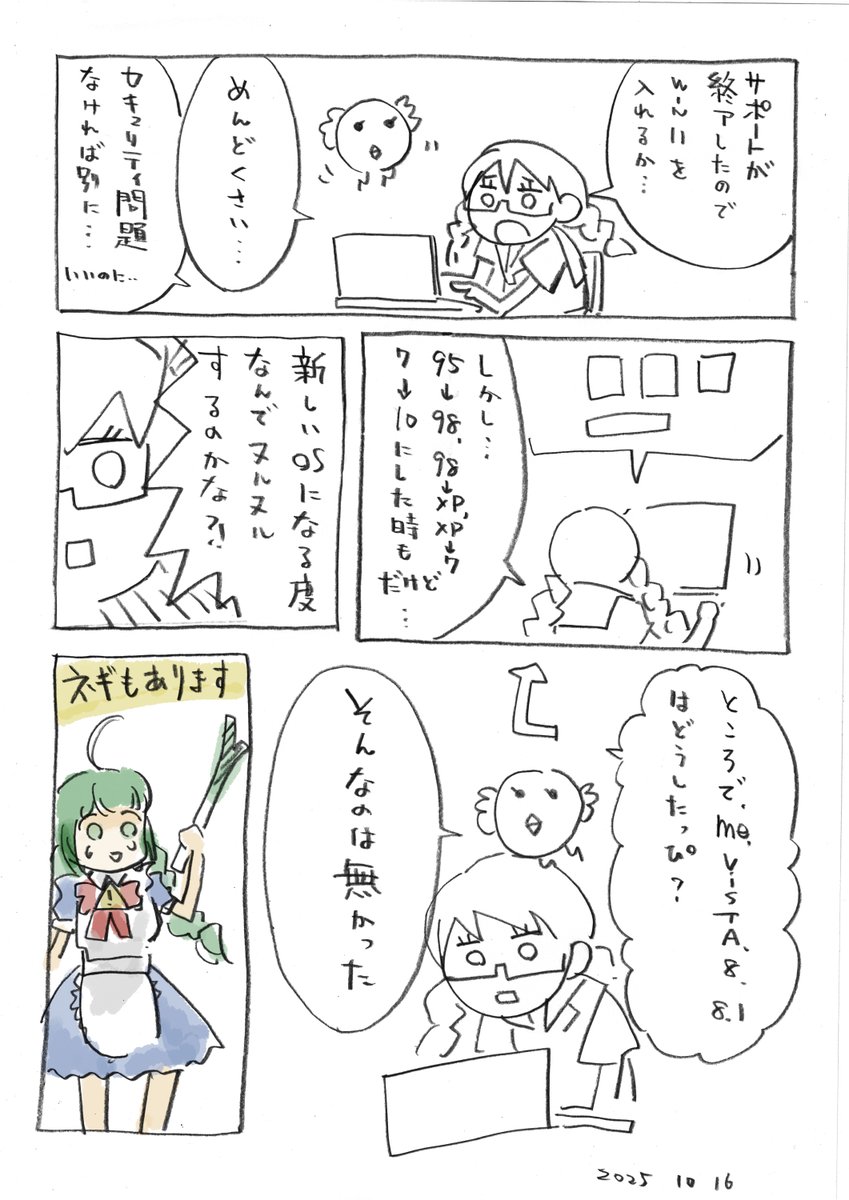 サポートが
終了したので
win11を
入れるか…
めんどくさい…
セキュリティ問題
なければ別に…
いいのに…
しかし…
95→98、98→XP、XP→7
7→10にした時も
だけど…
新しいOSになる度
なんでヌルヌル
するのかな?!
ところで、me、VISTA、8、8.1
はどうしたっぴ?
そんなのは無かった
ネギもあります
2025 10 16